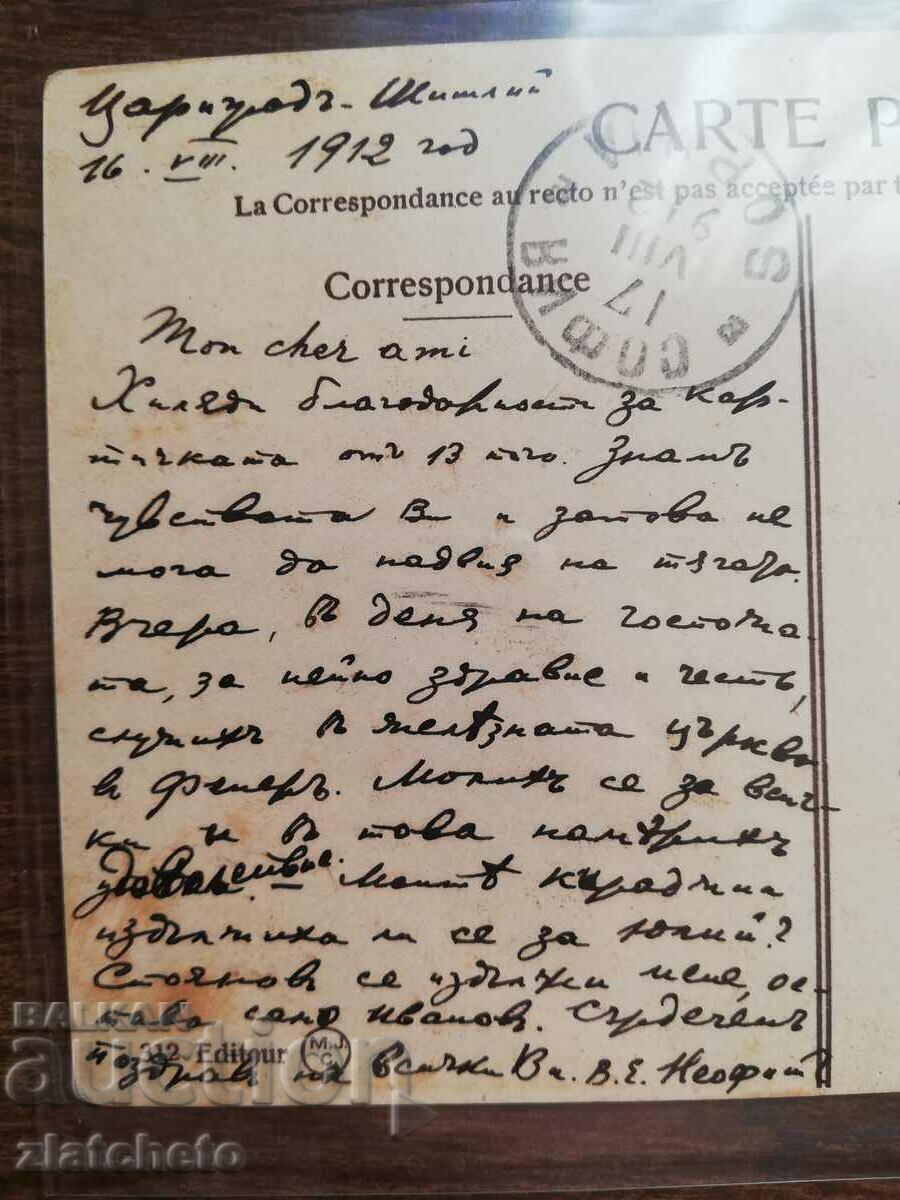 Цариградъ - Шишлий
16. VIII. 1912 год
CARTE P
La Correspondance au recto n'est pas acceptée par t
СОФИЯ
SOF
17
VIII
912
Correspondance
Mon cher ami
Хиляди благодарности за кар-
тичката отъ 13 того. Знамъ
чувствата Ви и затова не
мога да надвия на тягата.
Вчера, въ деня на госпожа-
та, за нейно здравие и честь,
служихъ въ желѣзната църква
въ Фенеръ. Молихъ се за всич-
ки и въ това намѣрихъ
удоволствие. — Моитѣ кираджии
издължиха ли се за Юлий?
Стояновъ се издължи мене, ос-
тава само Ивановъ. Сърдеченъ
поздравъ на всички Ви. В. Е. Неофитъ
312 Editeur
M.J.C.
BALKAN
auction
zlatcheto